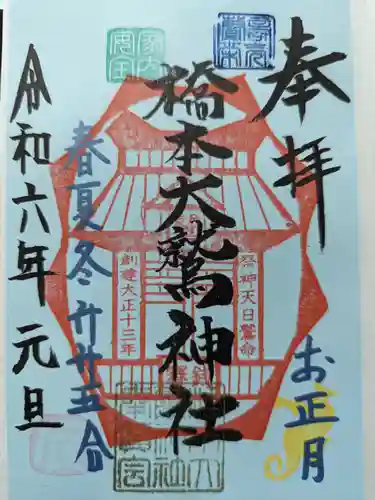 奉拝
お正月
橋本大鷲神社
祭神天日鷲命
創建大正十三年
春夏冬升廿五合
令和六年元旦
家内安全